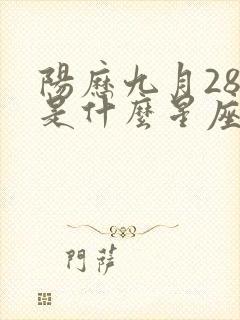 陽曆九月28
是什麼星座
門薩